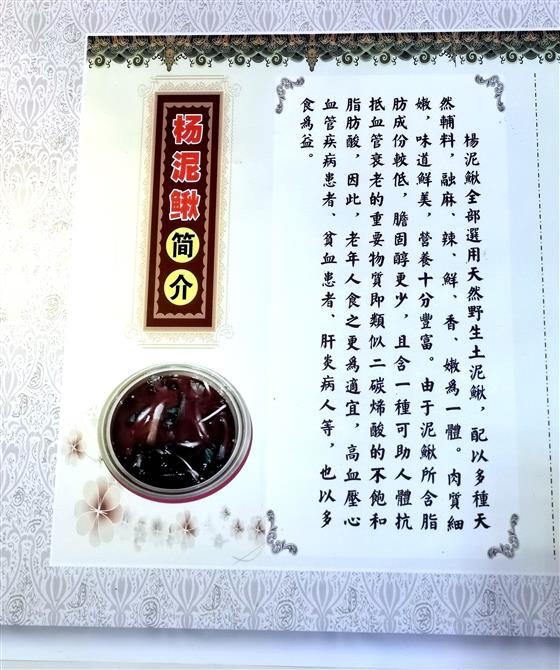 杨泥鳅简介
楊泥鰍全部選用天然野生土泥鰍，配以多種天
然輔料，融麻、辣、鮮、香、嫩爲一體。肉質細
嫩，味道鮮美，營養十分豐富。由于泥鰍所含脂
肪成份較低，膽固醇更少，且含一種可助人體抗
抵血管衰老的重要物質即類似二碳烯酸的不飽和
脂肪酸，因此，老年人食之更爲適宜，高血壓心
血管疾病患者、貧血患者、肝炎病人等，也以多
食爲益。